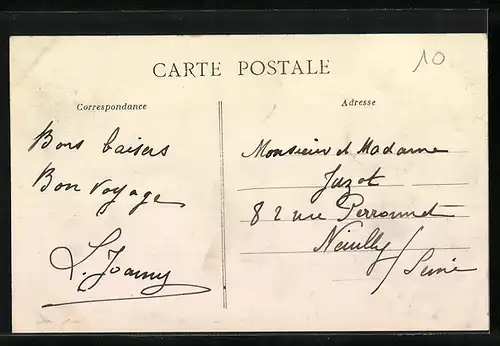 CARTE POSTALE
10
Correspondance
Adresse
Bons baisers
Bon voyage
Monsieur et Madame
82 rue Perronnet
Neuilly
/Seine